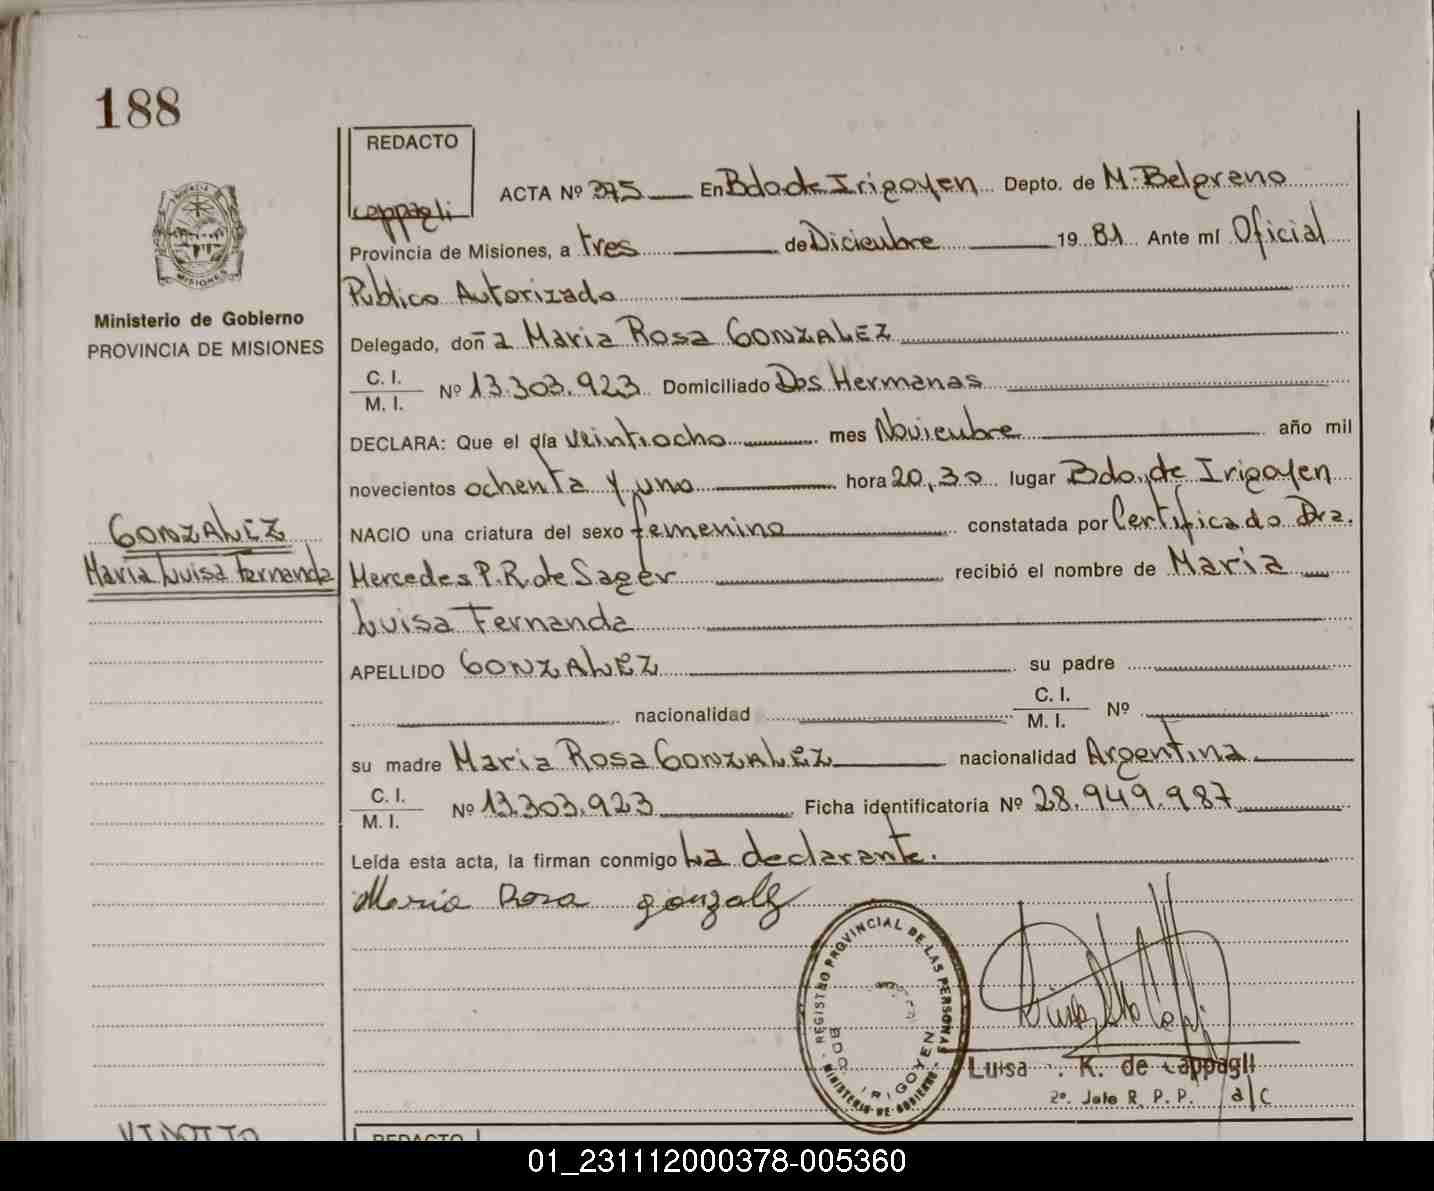 188
REDACTO
Cappagli
ACTA Nº 375 En Bdo de Irigoyen Depto. de M. Belgrano
Provincia de Misiones, a tres de Diciembre 19 81 Ante mí Oficial
Público Autorizado
Delegado, doña Maria Rosa GONZALEZ
C. I.
M. I.
Nº 13.303.923 Domiciliado Dos Hermanas
DECLARA: Que el día veintiocho mes Noviembre año mil
novecientos ochenta y uno hora 20,30 lugar Bdo. de Irigoyen
NACIO una criatura del sexo femenino constatada por Certificado Dra.
Mercedes P. R. de Sager recibió el nombre de Maria
Luisa Fernanda
APELLIDO GONZALEZ su padre
nacionalidad C. I.
M. I. Nº
su madre Maria Rosa GONZALEZ nacionalidad Argentina
C. I.
M. I.
Nº 13.303.923 Ficha identificatoria Nº 28.949.987
Leída esta acta, la firman conmigo La declarante.
Maria Rosa gonzalez
MISIONES
Ministerio de Gobierno
PROVINCIA DE MISIONES
GONZALEZ
Maria Luisa Fernanda
REGISTRO PROVINCIAL DE LAS PERSONAS
BDO. IRIGOYEN
MINISTERIO DE GOBIERNO
Luisa K. de Cappagli
2º. Jefe R. P. P. a/c
REDACTO
01_231112000378-005360